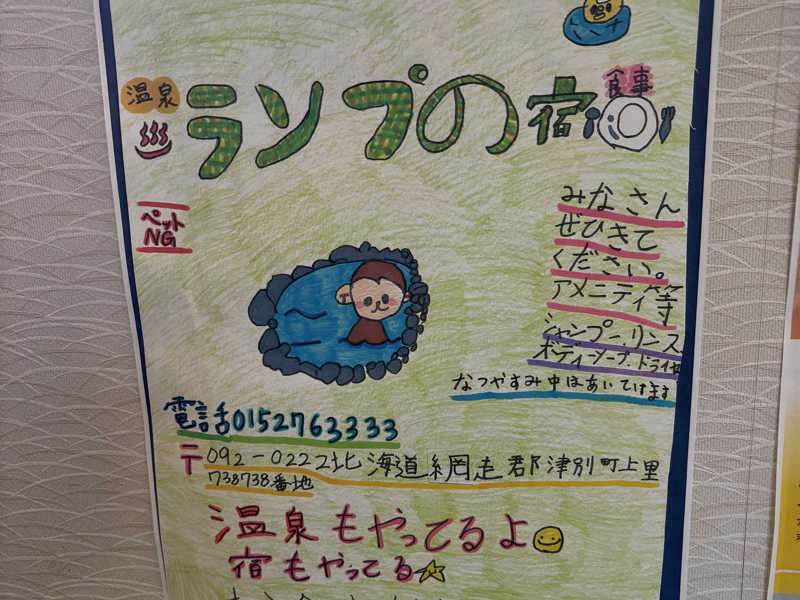 温泉
ランプの宿
食事
ペット
NG
みなさん
ぜひきて
ください。
アメニティ等
シャンプー、リンス
ボディーソープ、ドライヤー
なつやすみ中はあいてけます
電話0152763333
〒092-0222北海道網走郡津別町上里
738738番地
温泉もやってるよ
宿もやってる